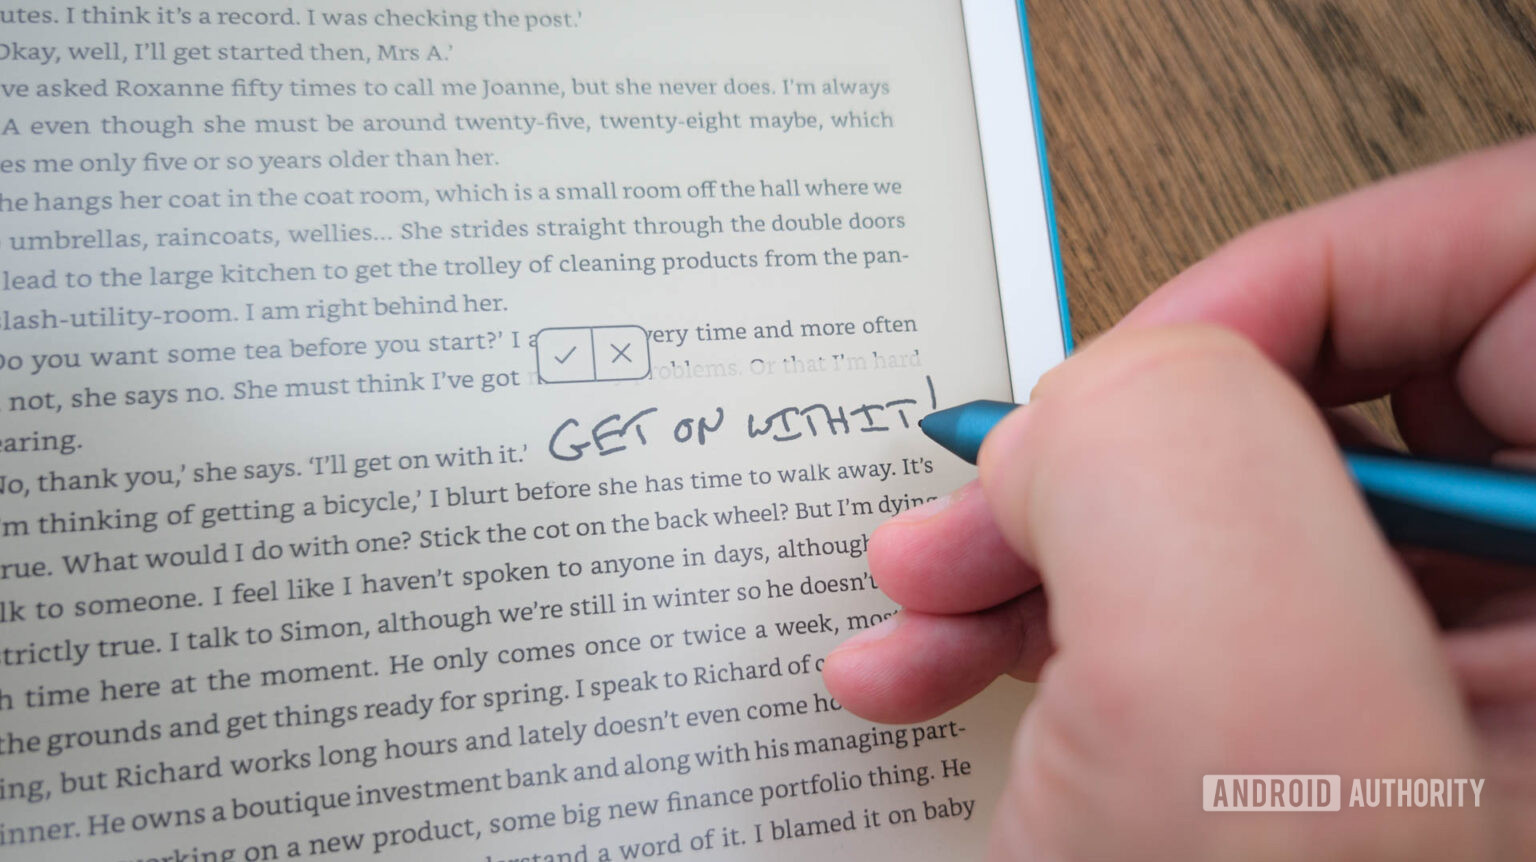 utes. I think it's a record. I was checking the post.'
Okay, well, I'll get started then, Mrs A.'
ve asked Roxanne fifty times to call me Joanne, but she never does. I'm always
A even though she must be around twenty-five, twenty-eight maybe, which
es me only five or so years older than her.
he hangs her coat in the coat room, which is a small room off the hall where we
umbrellas, raincoats, wellies... She strides straight through the double doors
lead to the large kitchen to get the trolley of cleaning products from the pan-
lash-utility-room. I am right behind her.
Do you want some tea before you start?' I a very time and more often
not, she says no. She must think I've got roblems. Or that I'm hard
earing.
No, thank you,' she says. 'I'll get on with it.' GET ON WITH IT!
'm thinking of getting a bicycle,' I blurt before she has time to walk away. It's
rue. What would I do with one? Stick the cot on the back wheel? But I'm dying
lk to someone. I feel like I haven't spoken to anyone in days, although
trictly true. I talk to Simon, although we're still in winter so he doesn't
h time here at the moment. He only comes once or twice a week, most
the grounds and get things ready for spring. I speak to Richard of c
ing, but Richard works long hours and lately doesn't even come ho
inner. He owns a boutique investment bank and along with his managing part-
orking on a new product, some big new finance portfolio thing. He
erstand a word of it. I blamed it on baby
ANDROID AUTHORITY